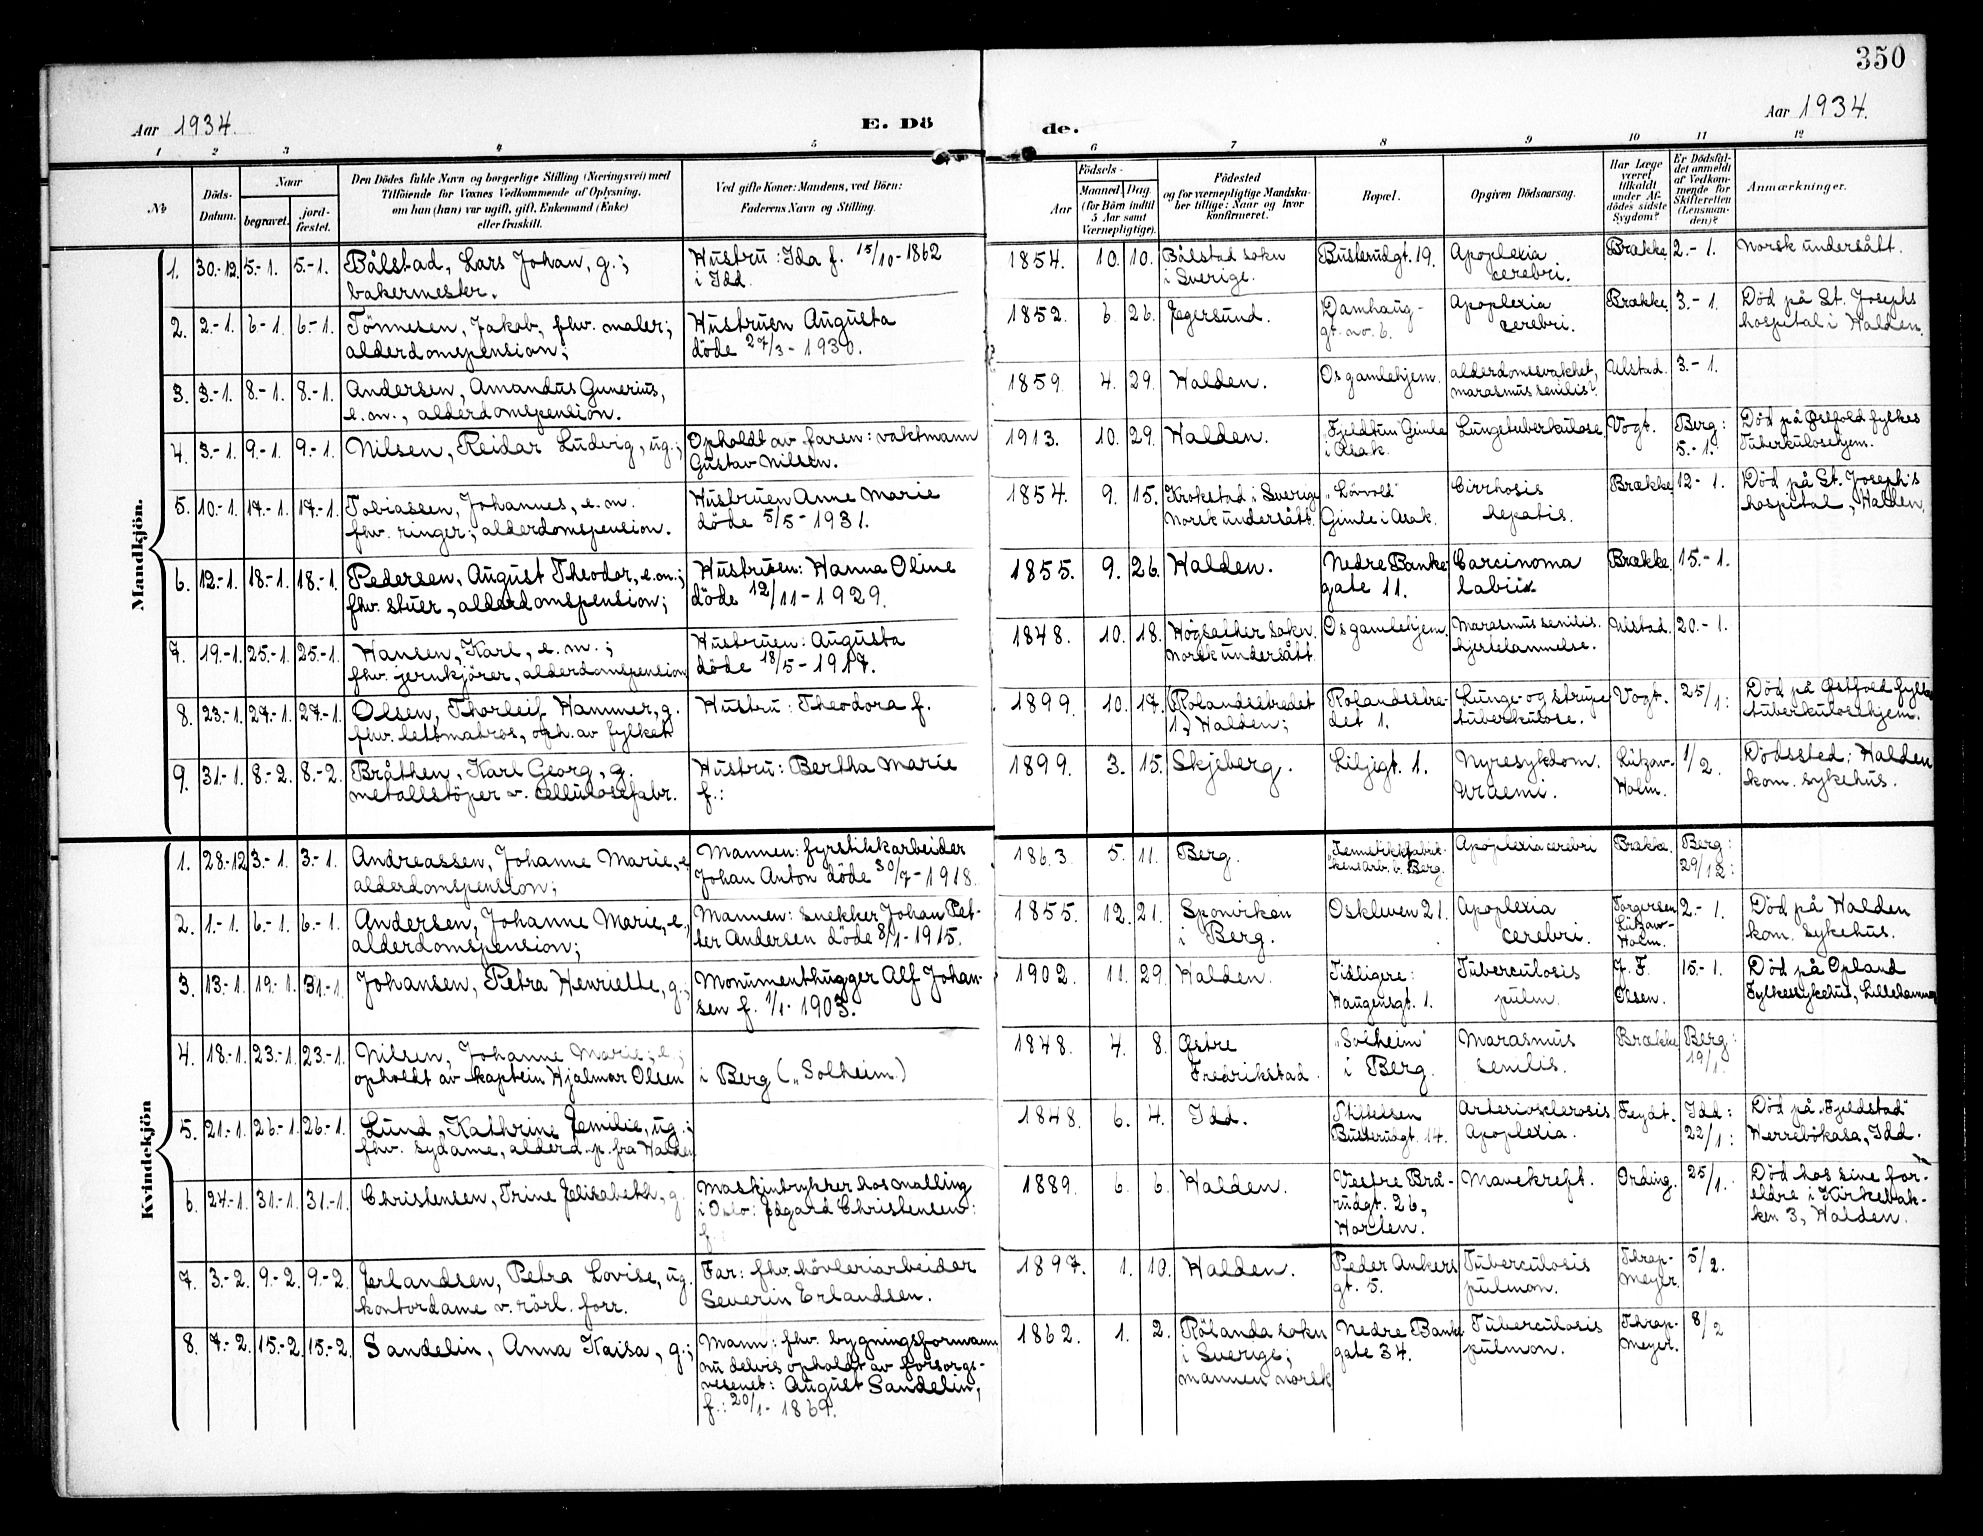 350
Aar 1934.
E. Döde.
Aar 1934.
1 2 3 4 5 6 7 8 9 10 11 12
№
Döds-Datum.
Naar
begravet.
jord-fæstet.
Den Dödes fulde Navn og borgerlige Stilling (Næringsvei) med
Tilföiende for Voxnes Vedkommende af Oplysning,
om han (hun) var ugift, gift, Enkemand (Enke)
eller fraskilt.
Ved gifte Koner: Mandens, ved Börn:
Faderens Navn og Stilling.
Födsels-
Aar
Maaned. Dag.
(for Börn indtil
5 Aar samt
Værnepligtige).
Födested
og for værnepligtige Mandska-
ber tillige: Naar og hvor
konfirmeret.
Bopæl.
Opgiven Dödsaarsag.
Har Læge
været
tilkaldt
under Af-
dödes sidste
Sygdom?
Er Dödsfal-
det anmeldt
af Vedkom-
mende for
Skifteretten
(Lensman-
den)?
Anmærkninger.
Mandkjön.
1. 30.-12. 5.-1. 5.-1. Bålstad, Lars Johan, g.; Hustru: Ida f. 15/10-1862 1854. 10. 10. Bålstad sokn Busterudgt. 19. Apoplexia Brække. 2.-1. Norsk undersått.
bakermester. i Idd. i Sverige. cerebri.
2. 2.-1. 6-1. 6.-1. Tönnesen, Jakob, fhv. maler; Hustruen Augusta 1852. 6. 26. Egersund. Damhaug- Apoplexia Brække. 3.-1. Död på St. Josephs
alderdomspension; döde 27/3-1930. gt. no. 6. cerebri. hospital i Halden.
3. 3.-1. 8-1. 8.-1. Andersen, Amandus Gunerius, 1859. 4. 29. Halden. Os gamlehjem. alderdomssvakhet, Ulstad. 3.-1.
e.m., alderdomspension. marasmus senilis?
4. 3.-1. 9.-1. 9.-1. Nilsen, Reidar Ludvig, ug.; Opholdt av faren: vaktmann 1913. 10. 29. Halden. Fjeldtun Gimle Lungetuberkulose. Vogt. Berg: Död på Østfold fylkes
Gustav Nilsen. i Asak. 5.-1. Tuberkulosehjem.
5. 10.-1. 17.-1. 17.-1. Tobiassen, Johannes, e.m. Hustruen Anne Marie 1854. 9. 15. Krokstad i Sverige „Lövvold" Cirrhosis Brække. 12-1. Död på St. Joseph's
fhv. ringer; alderdomspension. döde 5/5-1931. Norsk undersått. Gimle i Asak. hepatis. hospital, Halden.
6. 12.-1. 18.-1. 18.-1. Pedersen, August Theodor, e.m.; Hustruen: Hanna Oline 1855. 9. 26. Halden. Nedre Banke Carcinoma Brække. 15.-1.
fhv. stuer, alderdomspension; döde 12/11-1929. gate 11. labiix
7. 19.-1. 25.-1. 25.-1. Hansen, Karl, e.m.; Hustruen: Augusta 1848. 10. 18. Högsäther sokn. Os gamlehjem. Marasmus senilis. Ulstad. 20.-1.
fhv. jernkjörer, alderdomspension döde 18/5-1917. Norsk undersått. hjertelammelse.
8. 23.-1. 27.-1. 27.-1. Olsen, Thorleif Hammer, g. Hustru: Theodora f. 1899. 10. 17. (Rolandsstredet Rolandsstre- Lunge- og strupe Vogt. 25/1: Död på Østfold fylkes
fhv. lettmatros, oph. av fylket 1.) Halden; det 1. tuberkulose. tuberkulosehjem.
9. 31.-1. 8.-2. 8.-2. Bråthen, Karl Georg, g. Hustru: Bertha Marie 1899. 3. 15. Skjeberg. Liljegt. 1. Nyresykdom. Lützow- 1/2. Dödssted: Halden
metallstöper v. cellulosefabr. f.: Uraemi. Holm. kom. sykehus.
Kvindekjön
1. 28.-12 3.-1. 3.-1. Andreassen, Johanne Marie, e. Mannen: fyrstikkarbeider 1863. 5. 11. Berg. Apoplexia cerebri Brække. Berg:
alderdomspension; Johan Anton döde 30/7-1918. Berg. 29/12:
2. 1.-1. 6-1. 6.-1. Andersen, Johanne Marie, e, Mannen: snekker Johan Pet- 1855. 12. 21. Sponviken Oskleven 21. Apoplexia Torgersen 2.-1. Död på Halden
alderdomspension; ter Andersen döde 8/1-1915. i Berg. cerebri. Lützow-Holm. kom. sykehus.
3. 13.-1. 19.-1. 31.-1. Johansen, Petra Henriette, g., Monumenthugger Alf Johan- 1902. 11. 29. Halden. Tidligere: Tuberculosis J. F. 15.-1. Död på Opland
sen f. 1/1-1903. Haugensgt. 1. pulm. Olsen. Fylkessykehus, Lillehammer
4. 18.-1. 23.-1. 23.-1. Nilsen, Johanne Marie, e.; 1848. 4. 8. Østre „Solheim" Marasmus Brække. Berg:
opholdt av kaptein Hjalmar Olsen i Berg („Solheim") Fredrikstad. i Berg. senilis. 19/1.
5. 21.-1. 26.-1. 26.-1. Lund, Kathrine Emilie, ug.; 1848. 6. 4. Idd. Stiftelsen Arteriosclerosis Feydt. Idd: Död på „Fjeldstad"
fhv. sydame, alderd.p. fra Halden Busterudgt. 14. Apoplexia. 22/1: Herrebökasa, Idd.
6. 24.-1. 31.-1. 31.-1. Christensen, Trine Elisabeth, g. Maskintrykker hos Malling 1889. 6. 6. Halden. Vestre Brå- Mavekreft. Ording. 25/1. Död hos sine for-
i Oslo: Edgard Christensen: rudgt. 26, eldre i Kirkebak-
f. Halden. ken 3, Halden.
7. 3.-2. 9.-2. 9.-2. Erlandsen, Petra Lovise, ug. Far: fhv. hövleriarbeider 1897. 1. 10. Halden. Peder Ankers Tuberculosis Thrap- 5/2.
kontordame v. rörl. forr. Severin Erlandsen. gt. 5. pulmon. Meyer.
8. 7.-2. 15.-2. 15.-2. Sandelin, Anna Kaisa, g.; Mann: fhv. bygningsformann 1862. 1. 2. Rölanda sokn Nedre Banke Tuberculosis Thrap- 8/2
nu delvis opholdt av forsorgs- i Sverige; gate 34. pulmon. Meyer.
vesenet: August Sandelin, mannen norsk
f.: 20/1-1869.